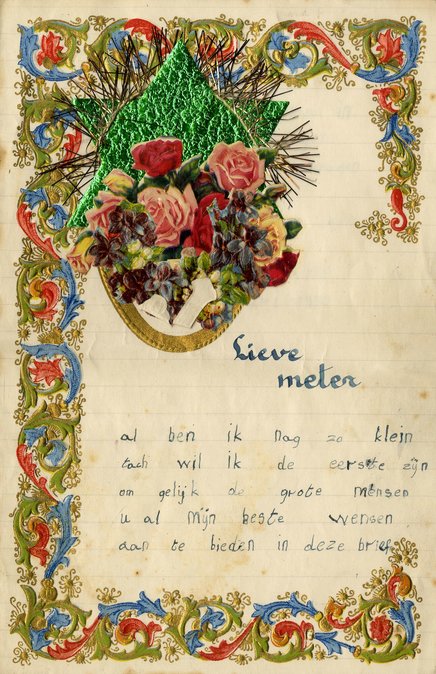 Lieve
meter
al ben ik nog zo klein
toch wil ik de eerste zijn
om gelijk de grote mensen
u al mijn beste wensen
aan te bieden in deze brief